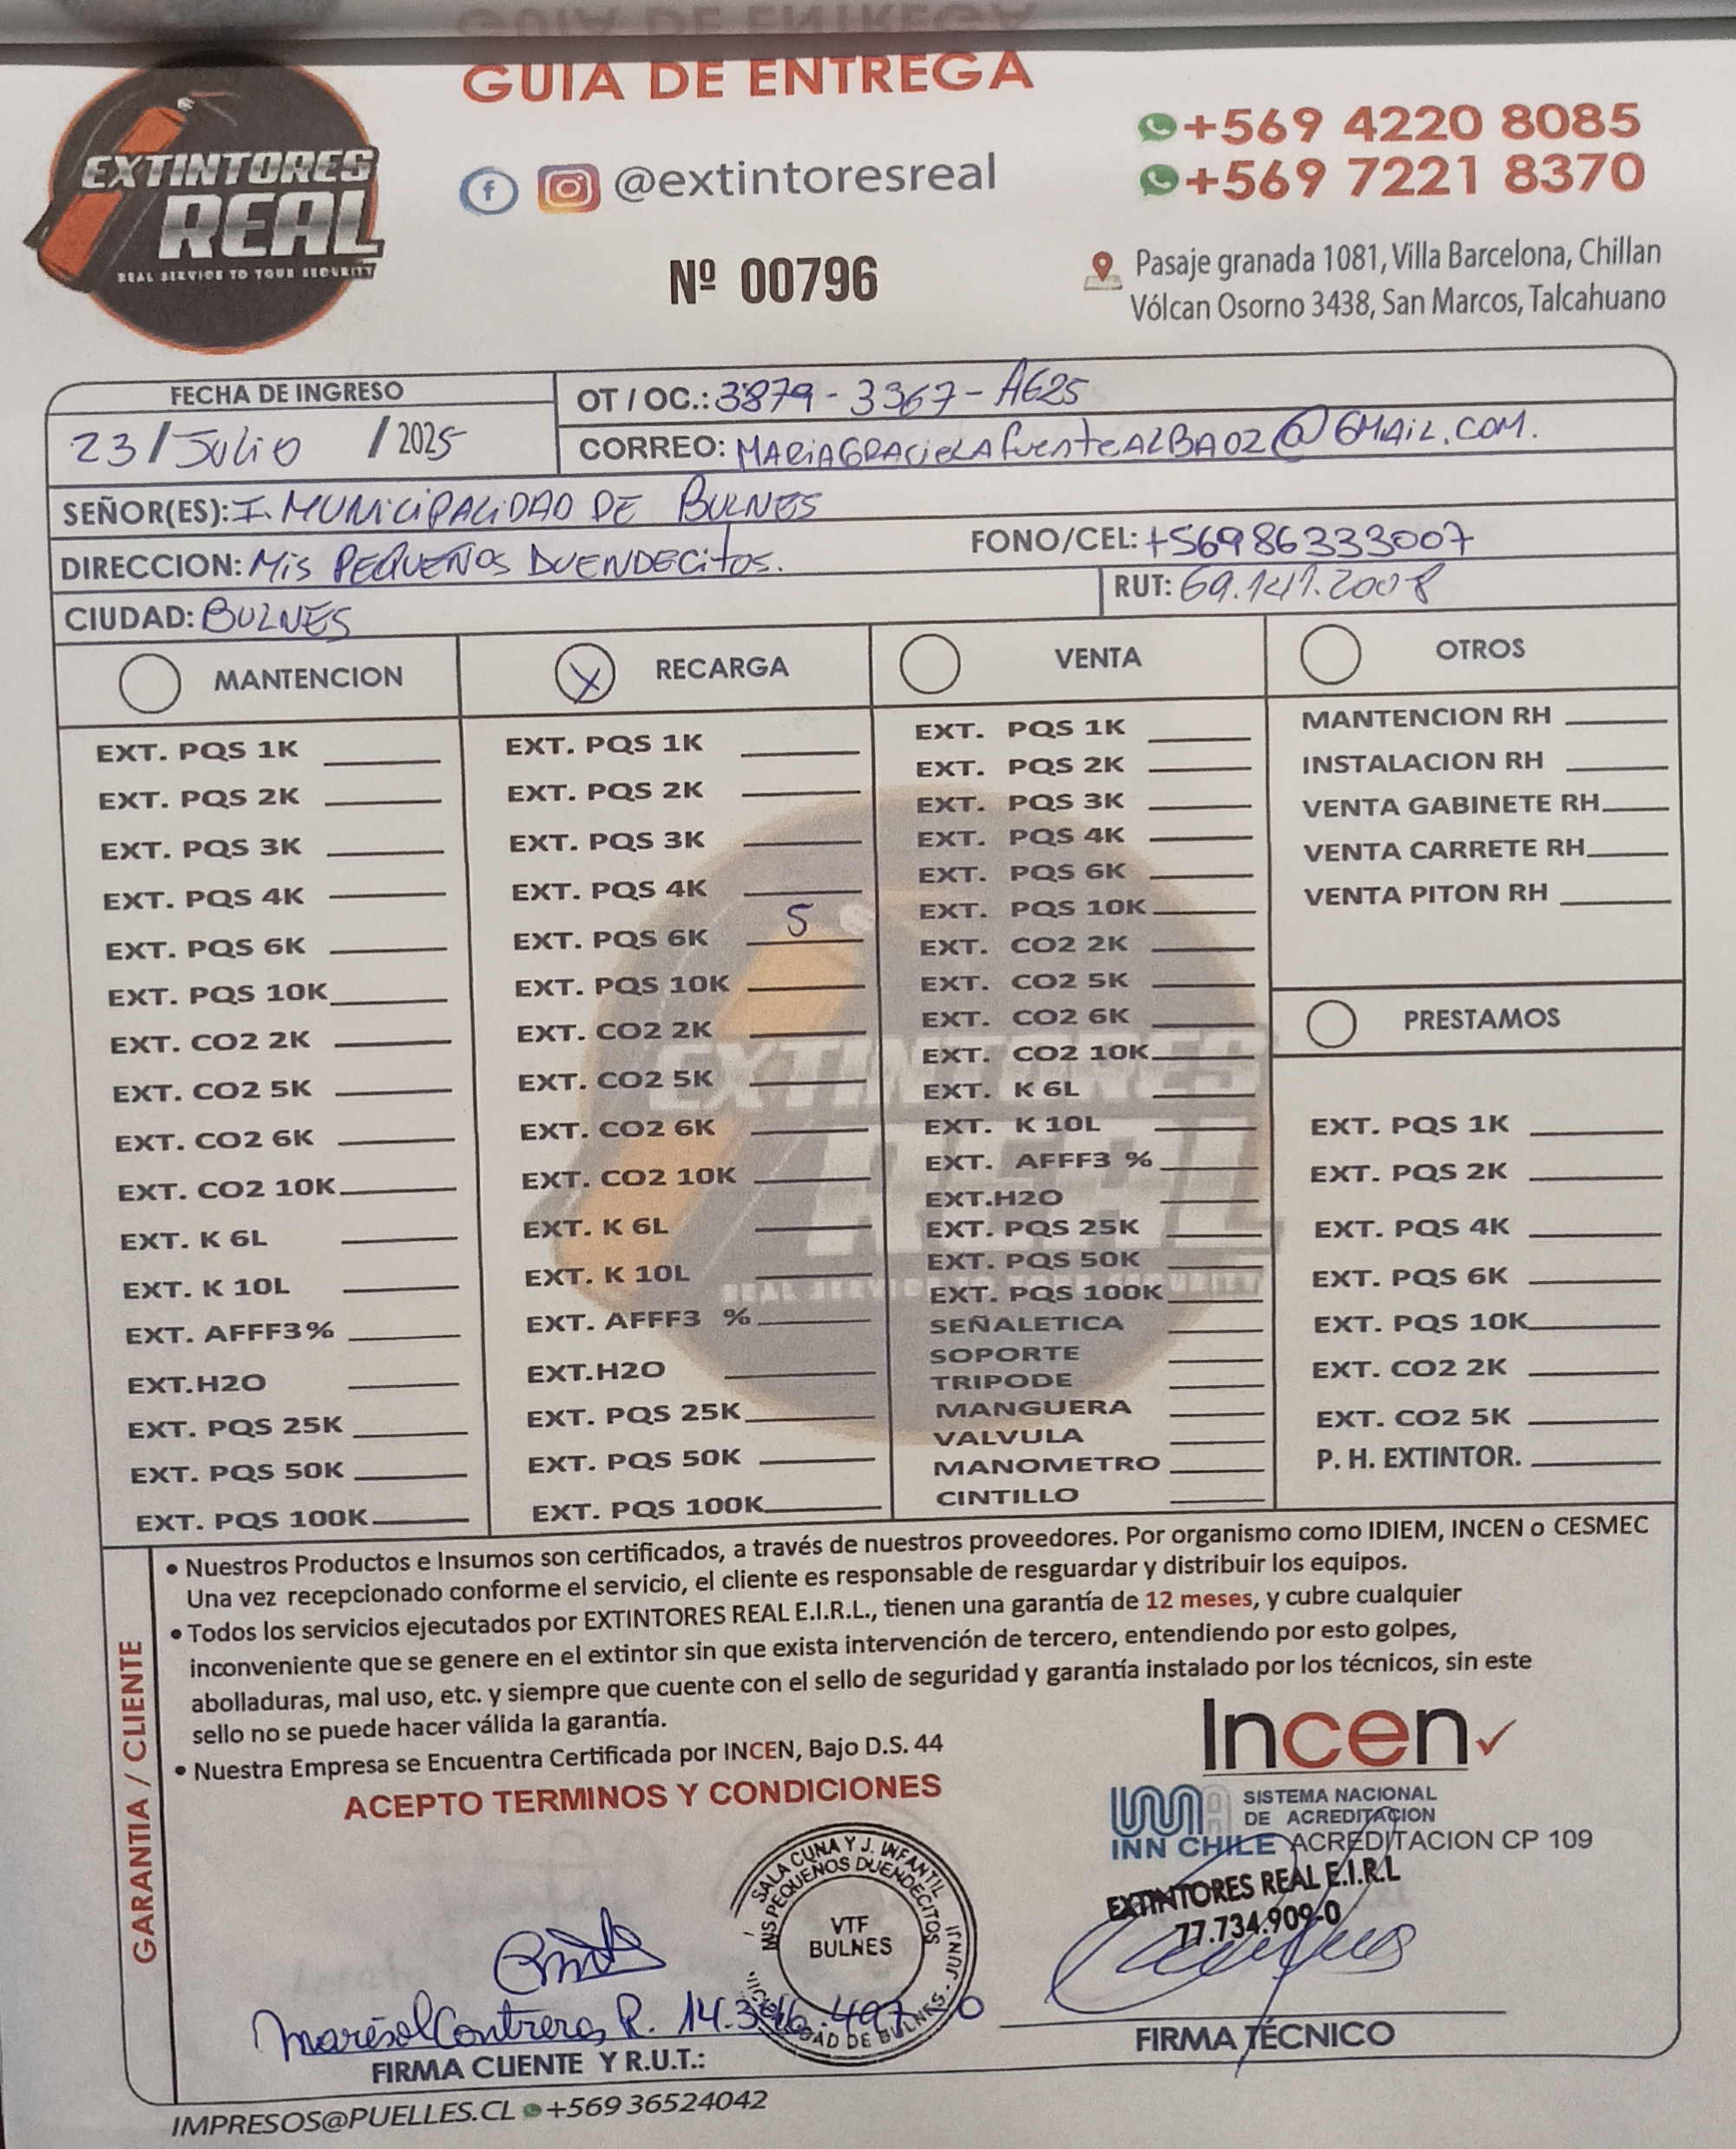 GUIA DE ENTREGA
EXTINTORES
REAL
REAL SERVICE TO YOUR SECURITY
@extintoresreal
+569 4220 8085
+569 7221 8370
Nº 00796
Pasaje granada 1081, Villa Barcelona, Chillan
Vólcan Osorno 3438, San Marcos, Talcahuano
FECHA DE INGRESO
23/Julio/2025
OT / OC.: 3879-3367-AG25
CORREO: MARIAGRACIELAfuenteALBA02@GMAIL.COM.
SEÑOR(ES): I. MUNICIPALIDAD DE BULNES
DIRECCION: Mis PEQUEÑOS DUENDECITOS.
FONO/CEL: +56986333007
CIUDAD: BULNES
RUT: 69.141.2008
MANTENCION
EXT. PQS 1K
EXT. PQS 2K
EXT. PQS 3K
EXT. PQS 4K
EXT. PQS 6K
EXT. PQS 10K
EXT. CO2 2K
EXT. CO2 5K
EXT. CO2 6K
EXT. CO2 10K
EXT. K 6L
EXT. K 10L
EXT. AFFF3%
EXT.H2O
EXT. PQS 25K
EXT. PQS 50K
EXT. PQS 100K
X RECARGA
EXT. PQS 1K
EXT. PQS 2K
EXT. PQS 3K
EXT. PQS 4K
EXT. PQS 6K 5
EXT. PQS 10K
EXT. CO2 2K
EXT. CO2 5K
EXT. CO2 6K
EXT. CO2 10K
EXT. K 6L
EXT. K 10L
EXT. AFFF3 %
EXT.H2O
EXT. PQS 25K
EXT. PQS 50K
EXT. PQS 100K
VENTA
EXT. PQS 1K
EXT. PQS 2K
EXT. PQS 3K
EXT. PQS 4K
EXT. PQS 6K
EXT. PQS 10K
EXT. CO2 2K
EXT. CO2 5K
EXT. CO2 6K
EXT. CO2 10K
EXT. K 6L
EXT. K 10L
EXT. AFFF3 %
EXT.H2O
EXT. PQS 25K
EXT. PQS 50K
EXT. PQS 100K
SEÑALETICA
SOPORTE
TRIPODE
MANGUERA
VALVULA
MANOMETRO
CINTILLO
OTROS
MANTENCION RH
INSTALACION RH
VENTA GABINETE RH
VENTA CARRETE RH
VENTA PITON RH
PRESTAMOS
EXT. PQS 1K
EXT. PQS 2K
EXT. PQS 4K
EXT. PQS 6K
EXT. PQS 10K
EXT. CO2 2K
EXT. CO2 5K
P. H. EXTINTOR.
EXTINTORES
REAL
REAL SERVICE TO YOUR SECURITY
GARANTIA / CLIENTE
• Nuestros Productos e Insumos son certificados, a través de nuestros proveedores. Por organismo como IDIEM, INCEN o CESMEC
Una vez recepcionado conforme el servicio, el cliente es responsable de resguardar y distribuir los equipos.
• Todos los servicios ejecutados por EXTINTORES REAL E.I.R.L., tienen una garantía de 12 meses, y cubre cualquier
inconveniente que se genere en el extintor sin que exista intervención de tercero, entendiendo por esto golpes,
abolladuras, mal uso, etc. y siempre que cuente con el sello de seguridad y garantía instalado por los técnicos, sin este
sello no se puede hacer válida la garantía.
• Nuestra Empresa se Encuentra Certificada por INCEN, Bajo D.S. 44
ACEPTO TERMINOS Y CONDICIONES
Incen
SISTEMA NACIONAL
DE ACREDITACION
INN CHILE ACREDITACION CP 109
EXTINTORES REAL E.I.R.L
77.734.909-0
SALA CUNA Y J. INFANTIL
MIS PEQUEÑOS DUENDECITOS
VTF
BULNES
DAD DE BULNES - JUNJI
Marisol Contreras R. 14.346.497-0
FIRMA CLIENTE Y R.U.T.:
FIRMA TÉCNICO
IMPRESOS@PUELLES.CL +569 36524042